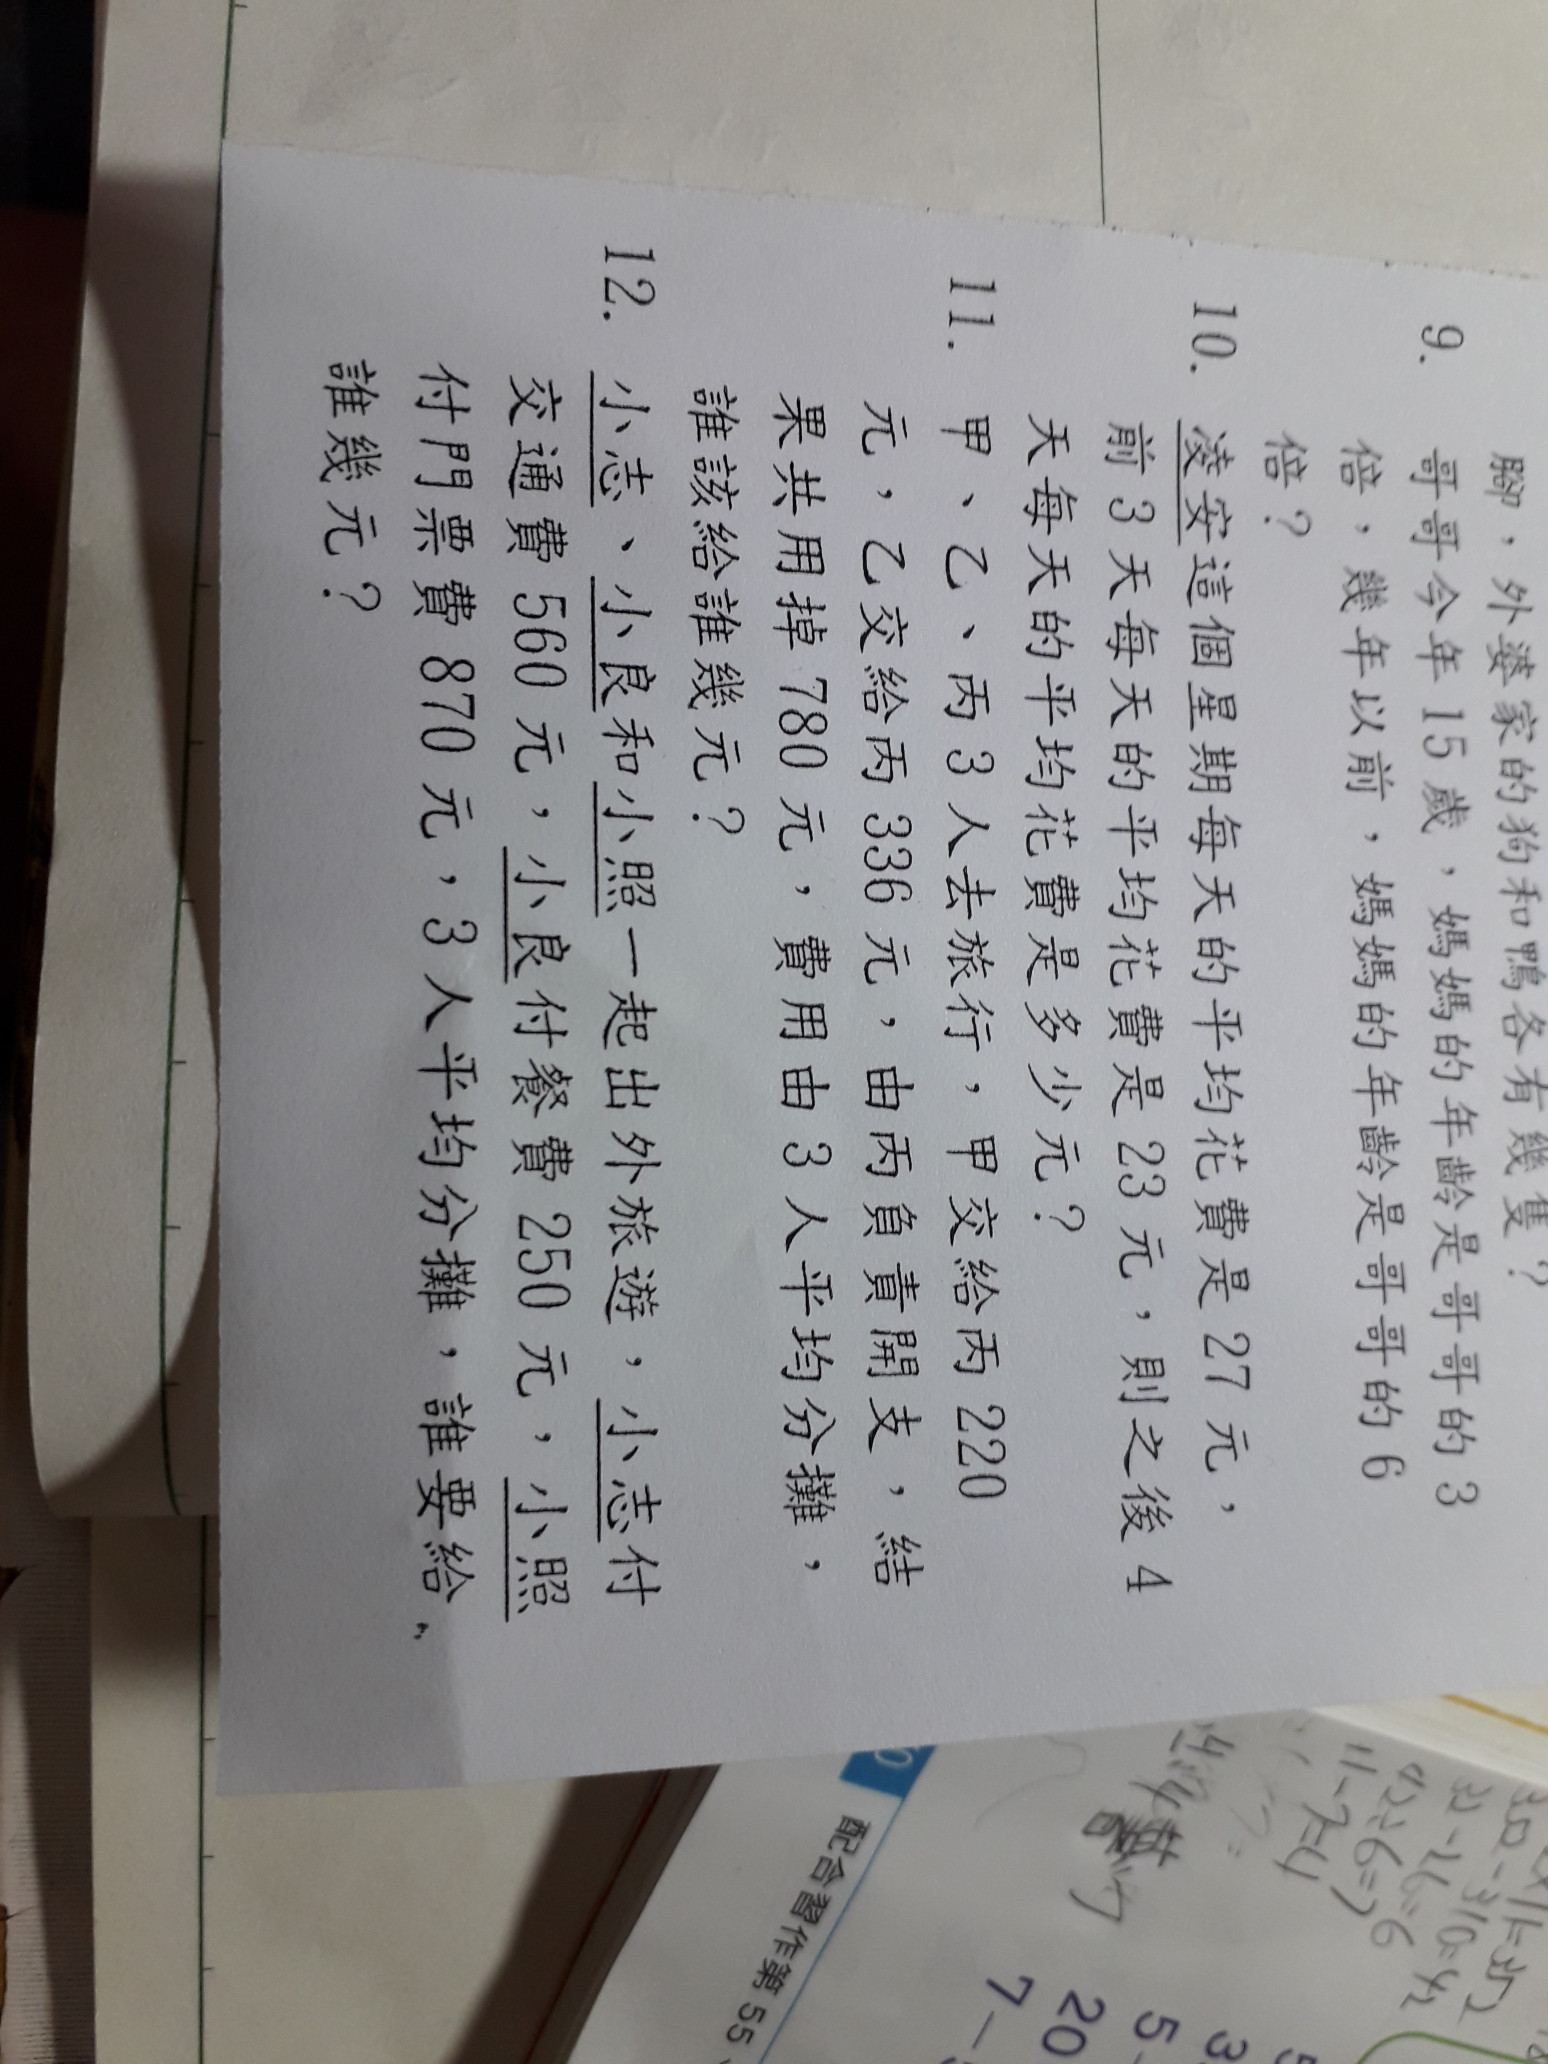 腳，外婆家的狗和鴨各有幾隻？
9. 哥哥今年15歲，媽媽的年齡是哥哥的3
倍，幾年以前，媽媽的年齡是哥哥的6
倍？
10. 凌安這個星期每天的平均花費是27元，
前3天每天的平均花費是23元，則之後4
天每天的平均花費是多少元？
11. 甲、乙、丙3人去旅行，甲交給丙220
元，乙交給丙336元，由丙負責開支，結
果共用掉780元，費用由3人平均分攤，
誰該給誰幾元？
12. 小志、小良和小照一起出外旅遊，小志付
交通費560元，小良付餐費250元，小照
付門票費870元，3人平均分攤，誰要給
誰幾元？
配合習作第55
32-26=6
42÷6=7
11-7=4
20